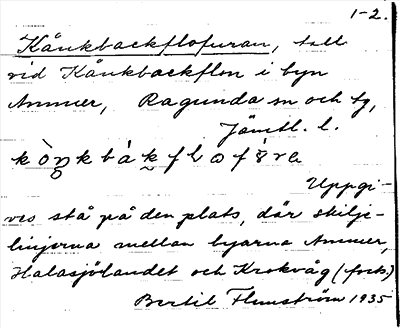 1-2.
Kånkbackflofuran, tall
vid Kånkbackflon i byn
Ammer, Ragunda sn och tg,
Jämtl. l.
kò̀ŋkbákflofʉ̀ra
Uppgi-
ves stå på den plats, där skilje-
linjerna mellan byarna Ammer,
Halasjölandet och Krokvåg (forts.)
Bertil Flemström 1935